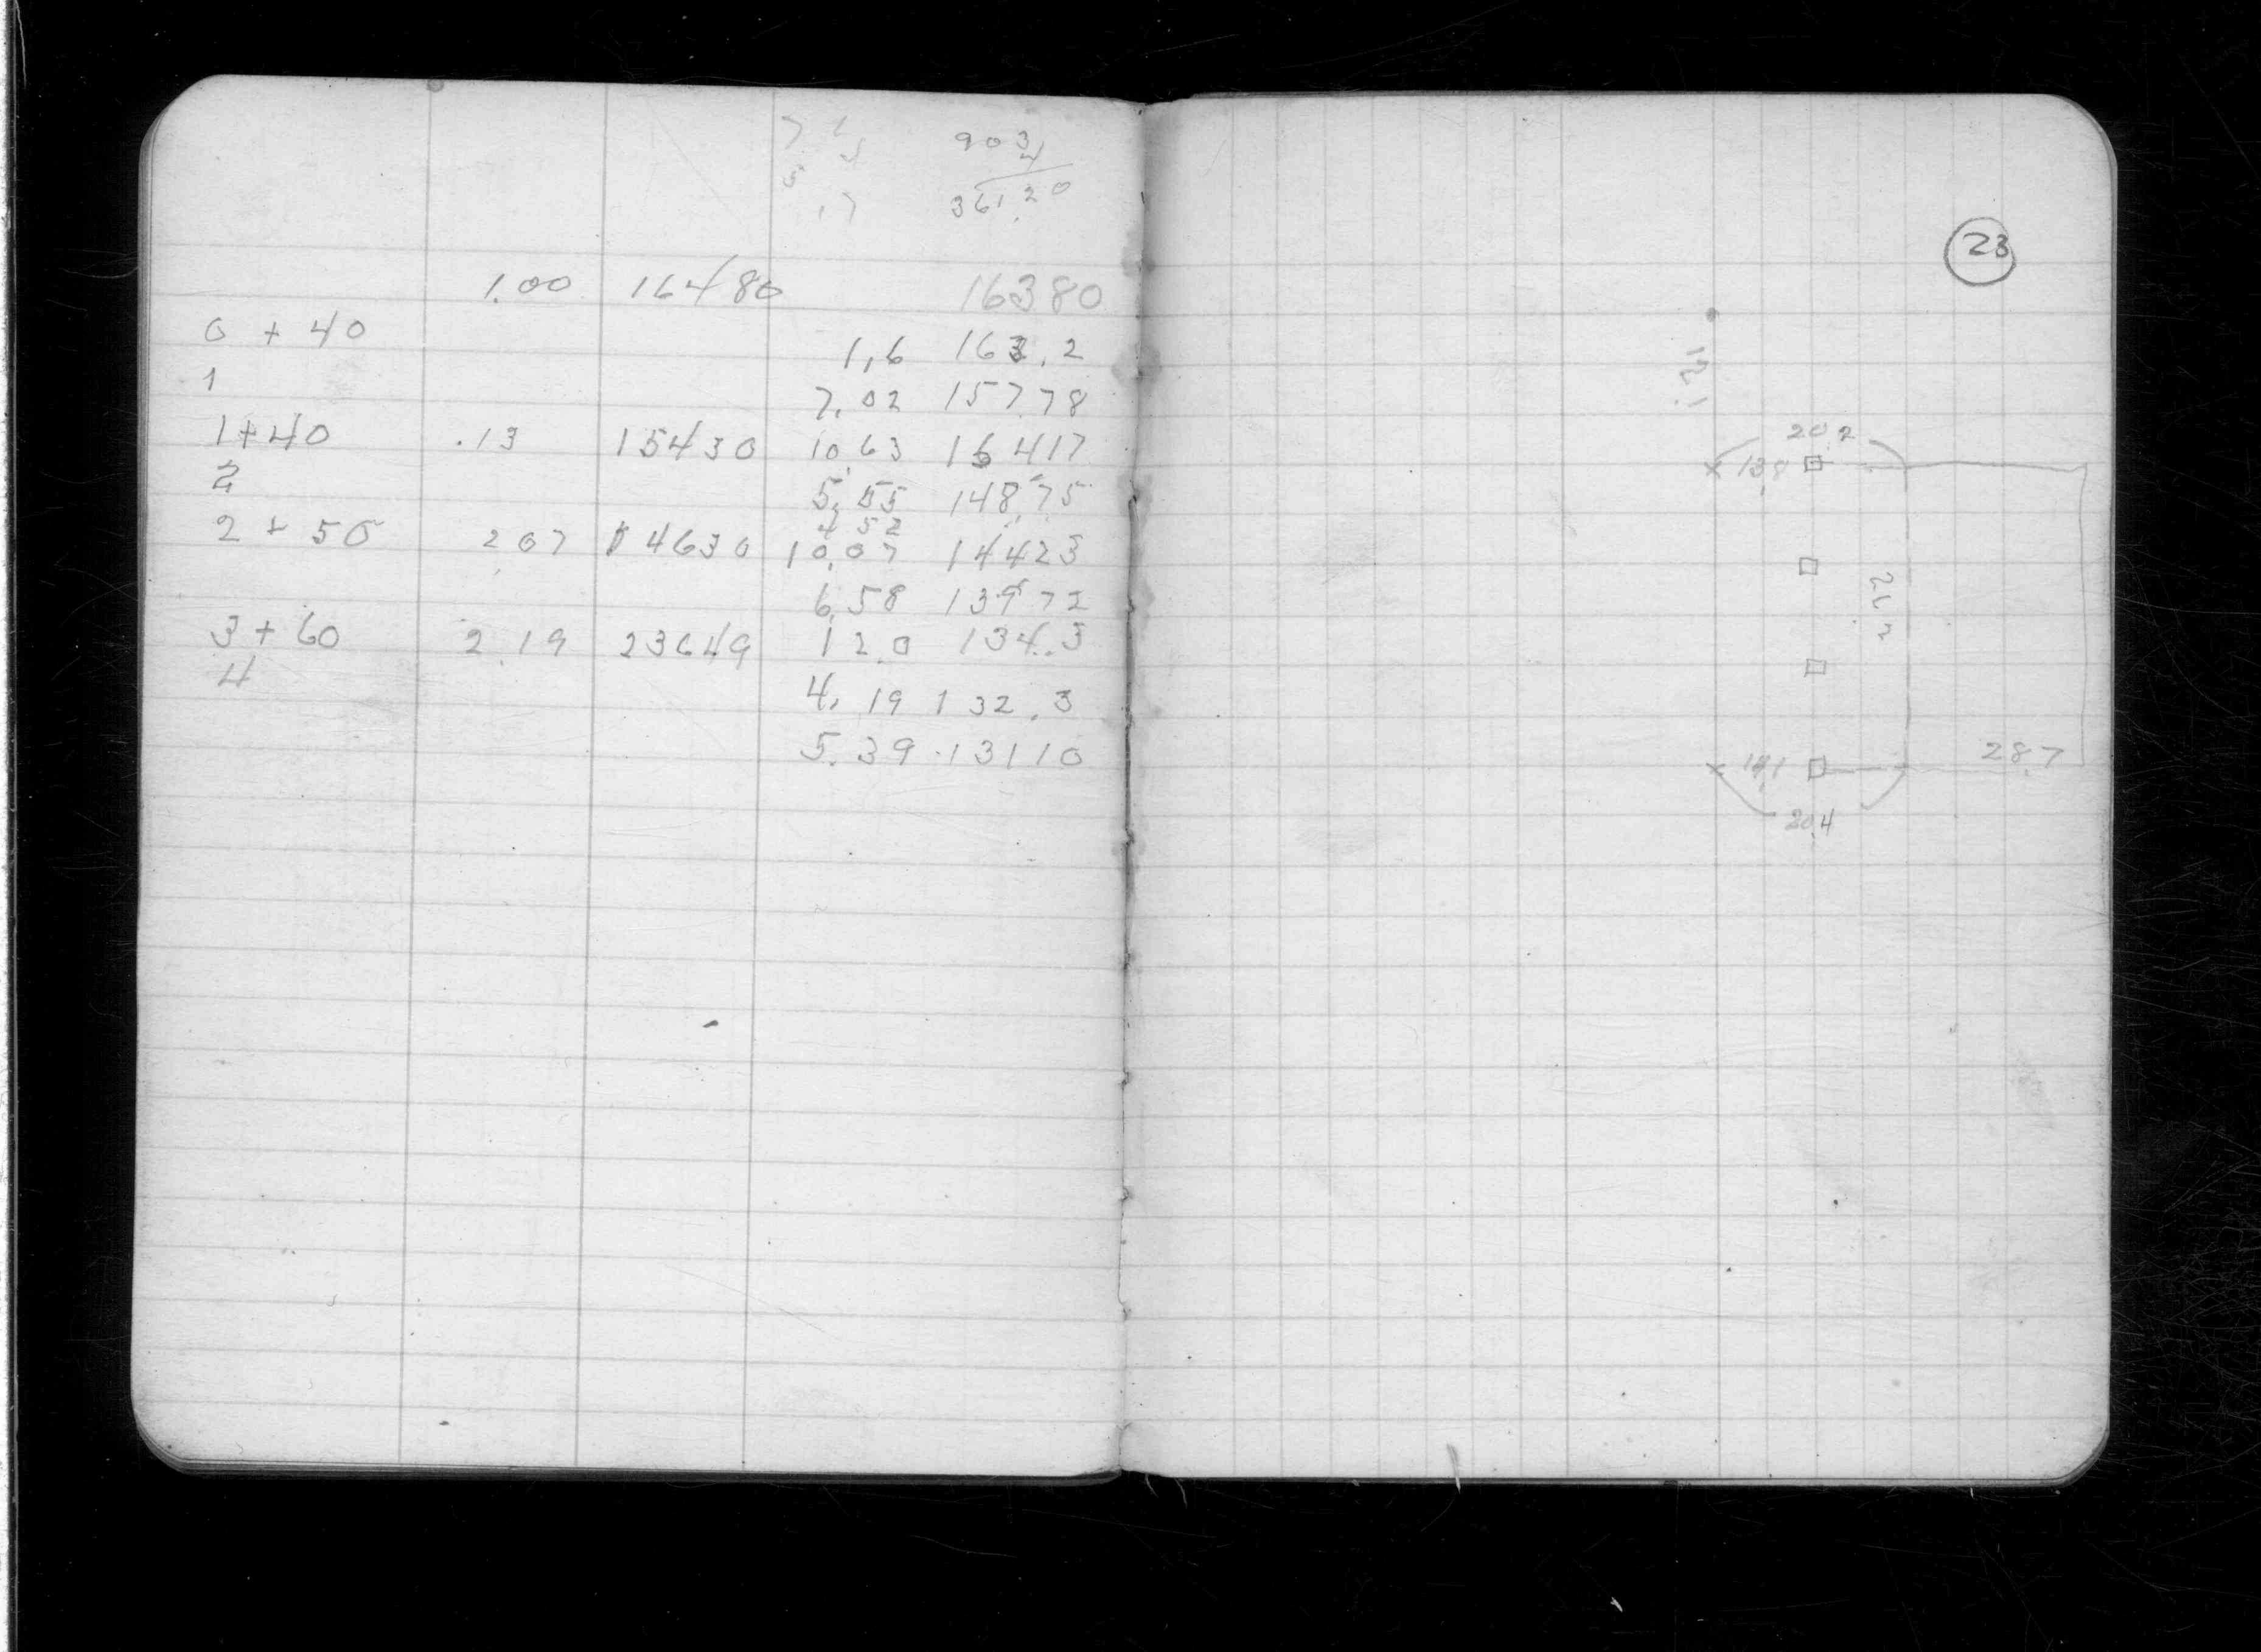 903
4
5
17
361.20
1.00 16480 16380
0 + 40 1,6 163.2
1 7.02 157.78
1+40 .13 15430 10,63 16417
2 5,55 148,75
4 52
2 + 50 207 14630 10,07 14423
6,58 139 72
3 + 60 2.19 23649 12.0 134.3
4 4,19 132.3
5.39 13110
23
20,2
13,9
28,7
14,1
20,4